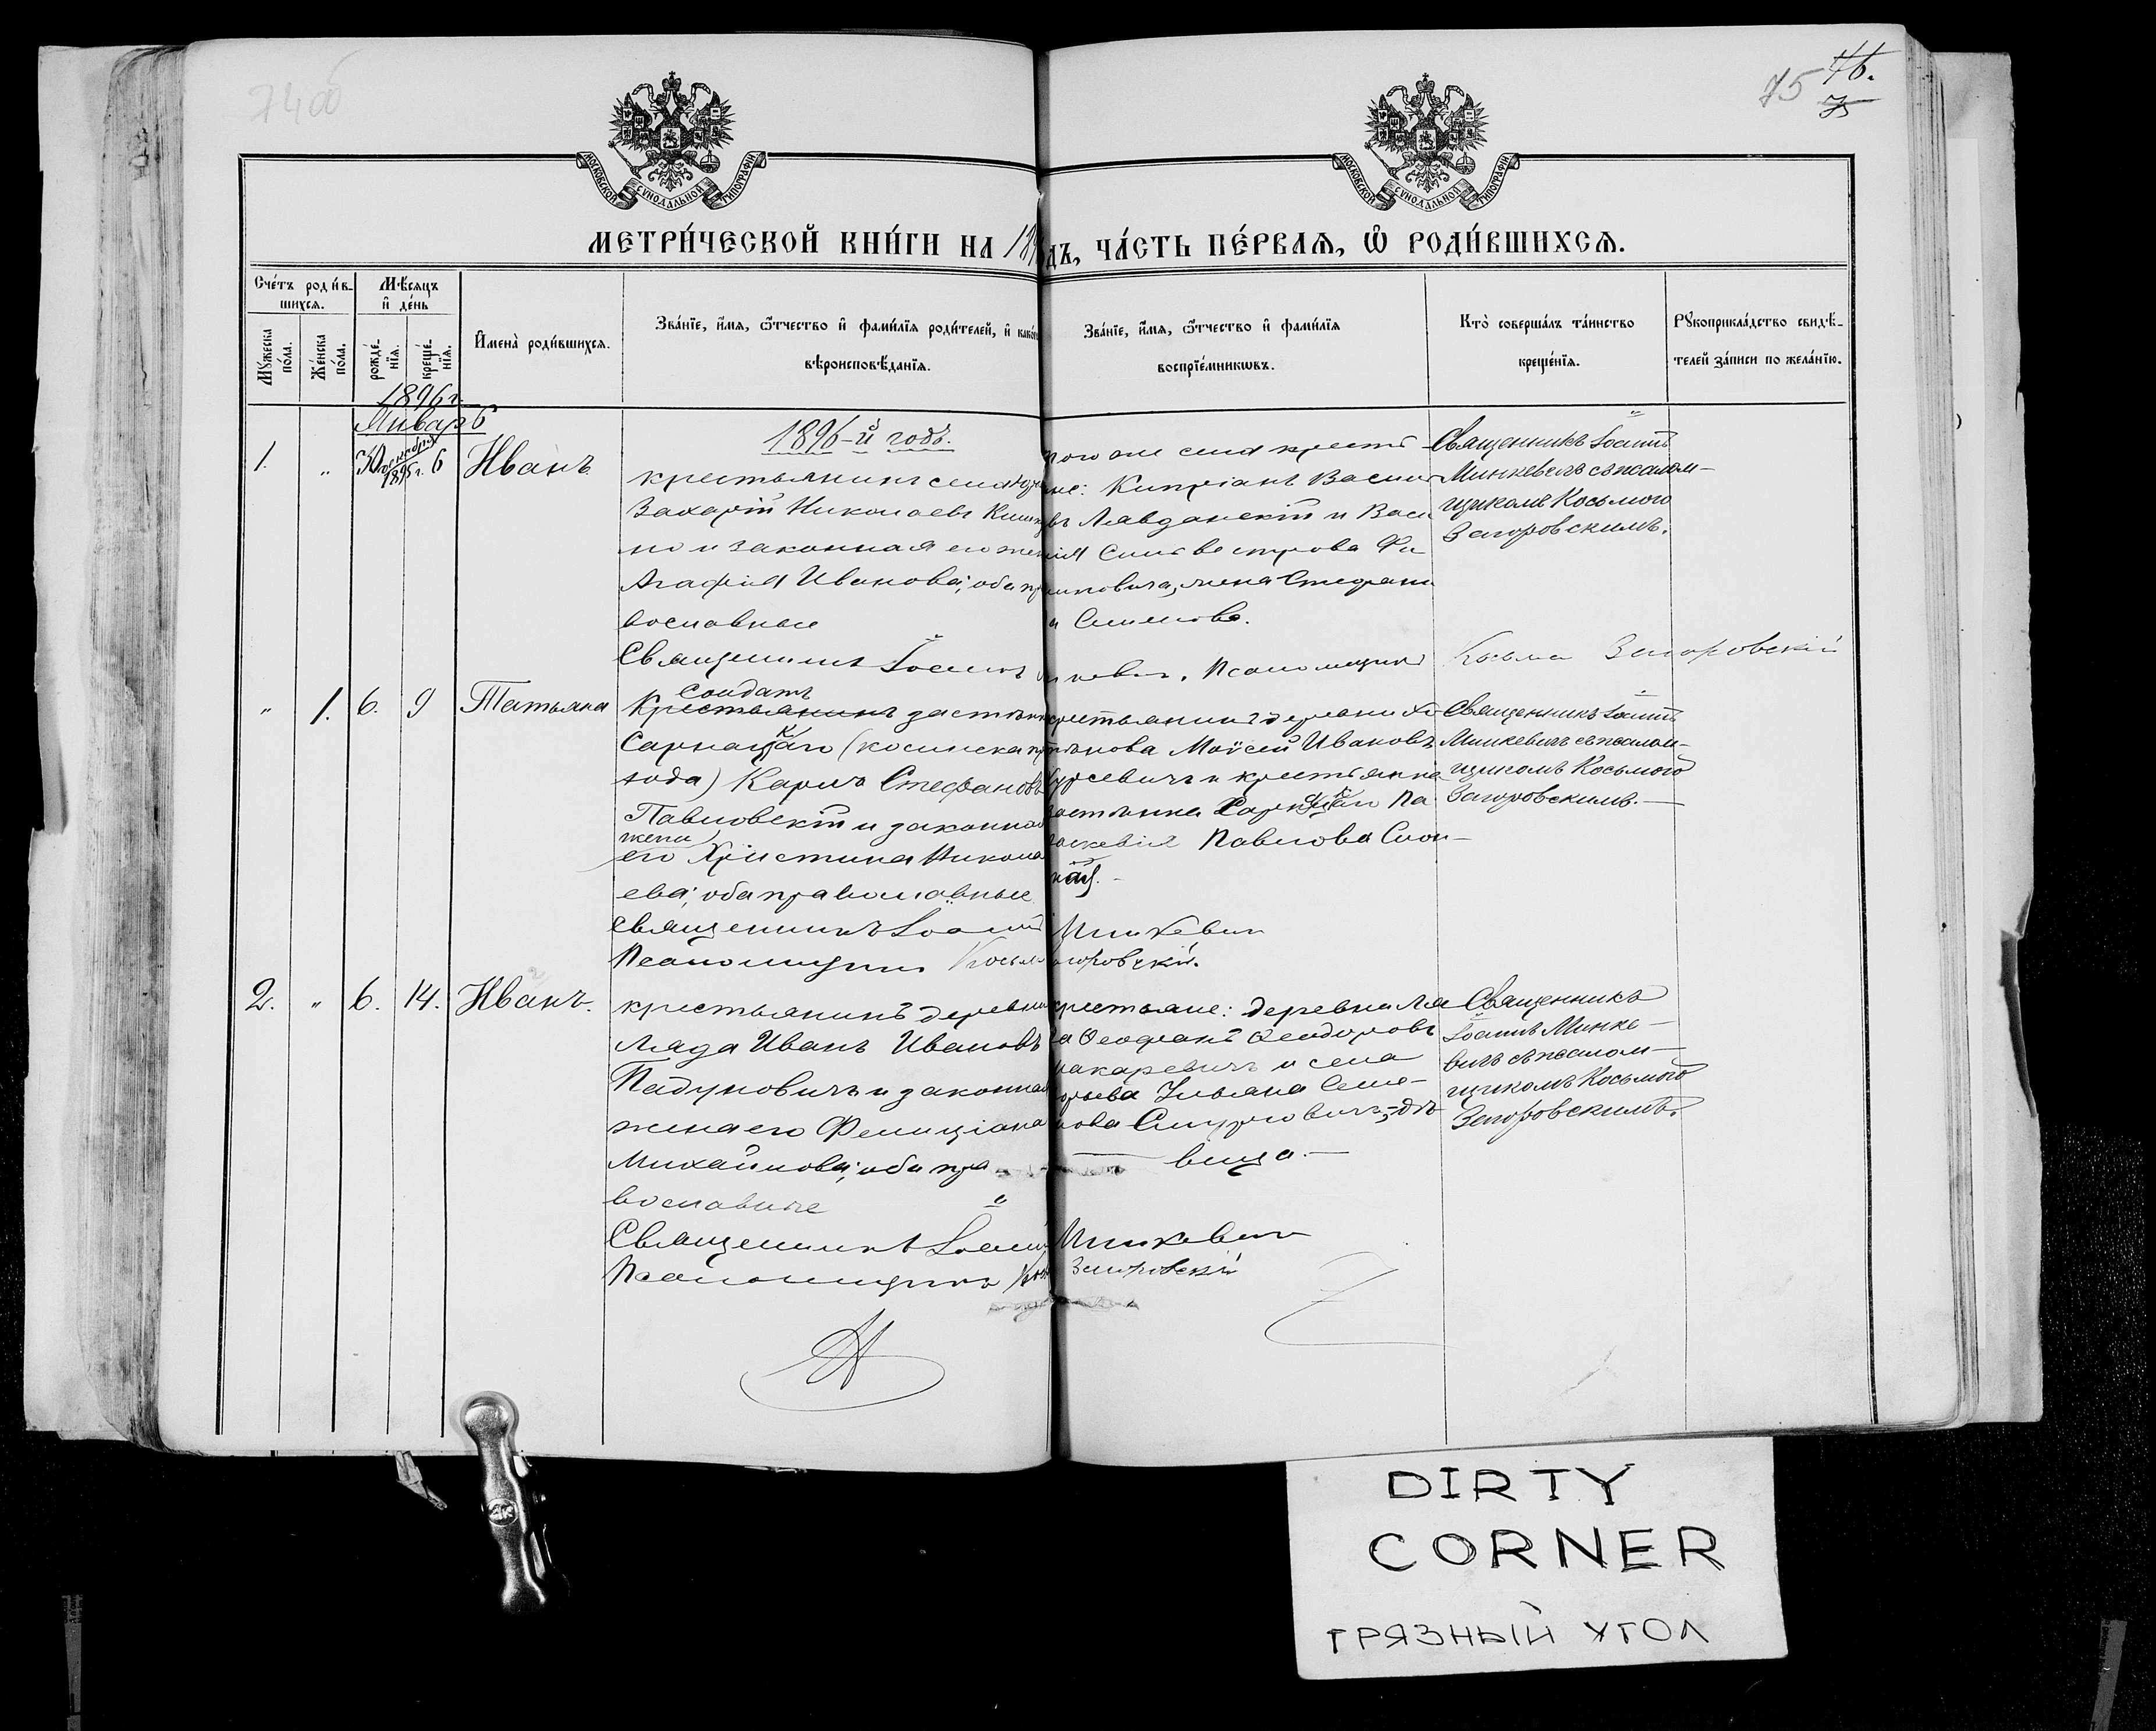 74об
75 76.
75
МОСКОВСКОЙ СУНОДАЛЬНОЙ ТИПОГРАФІИ
МОСКОВСКОЙ СУНОДАЛЬНОЙ ТИПОГРАФІИ
МЕТРИ́ЧЕСКОЙ КНИ́ГИ НА 189 дъ, ЧА́СТЬ ПЕ́РВАЯ, Ѽ РОДИ́ВШИХСЯ.
Сче́тъ роди́в-
шихся.
Мѣ́сяцъ
и҆ де́нь
Мꙋ́жеска
по́ла.
Же́нска
по́ла.
рожде́-
нїя.
креще́-
нїя.
И҆мена̀ роди́вшихся.
Зва́нїе, и҆́мя, ѻ҆́тчество и҆ фами́лїя роди́телей, и҆ како́
вѣроисповѣ́данїя.
Зва́нїе, и҆́мя, ѻ҆́тчество и҆ фами́лїя
воспрїе́мникѡвъ.
Кто̀ соверша́лъ та́инство
креще́нїя.
Рꙋкоприкла́дство свидѣ́-
телей за́писи по жела́нїю.
1896 г.
Январь
1896-й годъ.
1. " 30 Декабря 1895 г. 6 Иванъ
крестьянинъ села
Захарій Николаевъ
но и законная его жен
Агафія Иванова; оба пра
вославные
Священникъ Іоаннъ
того же села крестья
не: Кипріанъ Василь
въ Лавданскій и Васи
Сильвестрова Фи
жена Стефани
Священникъ Іоаннъ
Минкевичъ съ псалом-
щикомъ Косьмою
Загоровскимъ.
Псаломщикъ Косьма Загоровскій
" 1. 6. 9 Татьяна
Солдатъ
Крестьянинъ застѣнк
(косинска при
хода) Карпъ Стефановъ
Павловскій и законная
жена
его Христина Никола
ева; оба православные
Священникъ Іоаннъ Минкевичъ
Псаломщикъ Косьма Загоровскій.
крестьянинъ деревни
Мойсей Ивановъ
и крестьянка
застѣнка
Павлова
Священникъ Іоаннъ
Минкевичъ съ псалом-
щикомъ Косьмою
Загоровскимъ.
2. " 6. 14. Иванъ.
крестьянинъ деревни
Ляда Иванъ Ивановъ
Падуновичъ и законная
жена его Фелиціана
Михайлова; оба пра
вославные
Священникъ Іоаннъ Минкевичъ
Псаломщикъ Загоровскій
крестьяне: деревни Ля
да Ѳеофанъ Ѳеодоровъ
Макаревичъ и села
Ульяна Семе-
нова дѣ
вица.
Священникъ
Іоаннъ Минке-
вичъ съ псалом-
щикомъ Косьмою
Загоровскимъ.
DIRTY
CORNER
ГРЯЗНЫЙ УГОЛ